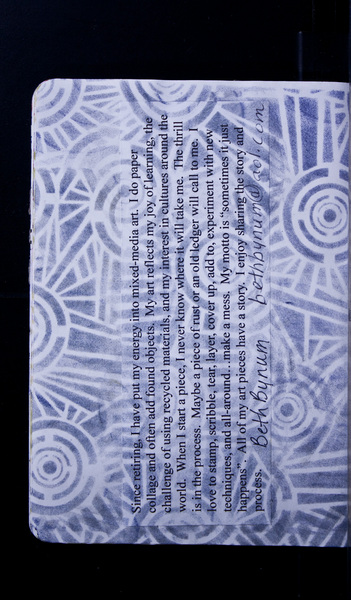 Since retiring, I have put my energy into mixed-media art.  I do paper
collage and often add found objects.  My art reflects my joy of learning, the
challenge of using recycled materials, and my interest in cultures around the
world.  When I start a piece, I never know where it will take me.  The thrill
is in the process.  Maybe a piece of rust or an old ledger will call to me.  I
love to stamp, scribble, tear, layer, cover up, add to, experiment with new
techniques, and all-around…make a mess.  My motto is "sometimes it just
happens".  All of my art pieces have a story.  I enjoy sharing the story and
process.
Beth Bynum bethbynum@aol.com